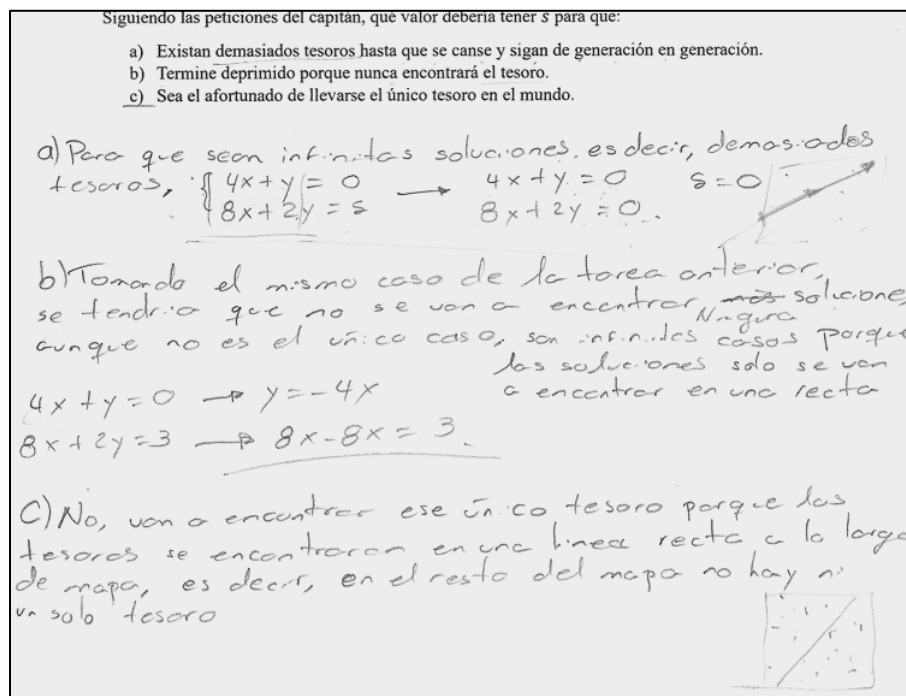 Siguiendo las peticiones del capitán, qué valor debería tener s para que:
a) Existan demasiados tesoros hasta que se canse y sigan de generación en generación.
b) Termine deprimido porque nunca encontrará el tesoro.
c) Sea el afortunado de llevarse el único tesoro en el mundo.
a) Para que sean infinitas soluciones. es decir, demasiados
tesoros, { 4x + y = 0 → 4x + y = 0 s = 0
8x + 2y = s 8x + 2y = 0.
b) Tomando el mismo caso de la tarea anterior,
se tendria que no se van a encontrar, soluciones
Ninguna
aunque no es el único caso, son infinitos casos porque
las soluciones solo se van
a encontrar en una recta
4x + y = 0 → y = -4x
8x + 2y = 3 → 8x - 8x = 3.
C) No, van a encontrar ese único tesoro porque los
tesoros se encontraran en una linea recta a lo largo
de mapa, es decir, en el resto del mapa no hay ni
un solo tesoro